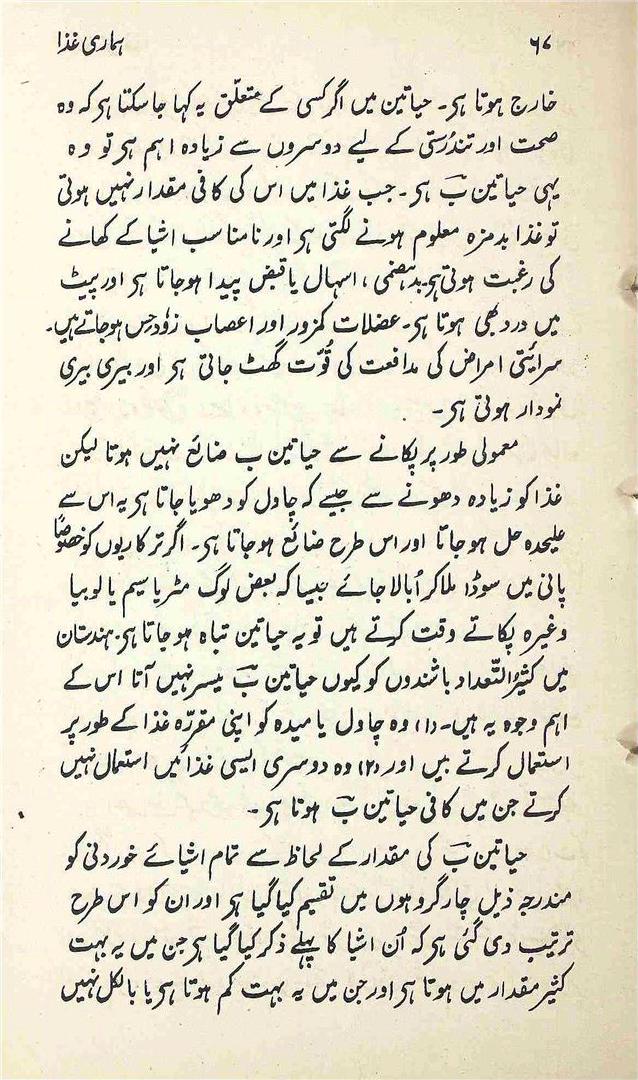 ۶۷
ہماری غذا
خارج ہوتا ہی۔ حیاتین میں اگر کسی کے متعلّق یہ کہا جا سکتا ہی کہ وہ
صحت اور تندرُستی کے لیے دوسروں سے زیادہ اہم ہی تو وہ
یہی حیاتین بؔ ہی۔ جب غذا میں اس کی کافی مقدار نہیں ہوتی
تو غذا بدمزہ معلوم ہونے لگتی ہی اور نامناسب اشیا کے کھانے
کی رغبت ہوتی ہی۔ بدہضمی، اسہال یا قبض پیدا ہو جاتا ہی اور پیٹ
میں درد بھی ہوتا ہی۔ عضلات کمزور اور اعصاب زُود حِس ہو جاتے ہیں۔
سرائتی امراض کی مدافعت کی قُوّت گھٹ جاتی ہی اور بیری بیری
نمودار ہوتی ہی۔
معمولی طور پر پکانے سے حیاتین ب ضائع نہیں ہوتا لیکن
غذا کو زیادہ دھونے سے جیسے کہ چاول کو دھویا جاتا ہی یہ اس سے
علیحدہ حل ہو جاتا اور اس طرح ضائع ہو جاتا ہی۔ اگر ترکاریوں کو خصُوصاً
پانی میں سوڈا ملا کر اُبالا جائے جیسا کہ بعض لوگ مٹر یا سیم یا لوبیا
وغیرہ پکاتے وقت کرتے ہیں تو یہ حیاتین تباہ ہو جاتا ہی۔ ہندستان
میں کثیرُ التّعداد باشندوں کو کیوں حیاتین بؔ میسر نہیں آتا اس کے
اہم وجوہ یہ ہیں۔ (۱) وہ چاول یا میدہ کو اپنی مقرّرہ غذا کے طور پر
استعمال کرتے ہیں اور (۲) وہ دوسری ایسی غذائیں استعمال نہیں
کرتے جن میں کافی حیاتین بؔ ہوتا ہی۔
حیاتین بؔ کی مقدار کے لحاظ سے تمام اشیائے خوردنی کو
مندرجہ ذیل چار گروہوں میں تقسیم کیا گیا ہی اور ان کو اس طرح
ترتیب دی گئی ہی کہ اُن اشیا کا پہلے ذکر کیا گیا ہی جن میں یہ بہت
کثیر مقدار میں ہوتا ہی اور جن میں یہ بہت کم ہوتا ہی یا بالکل نہیں